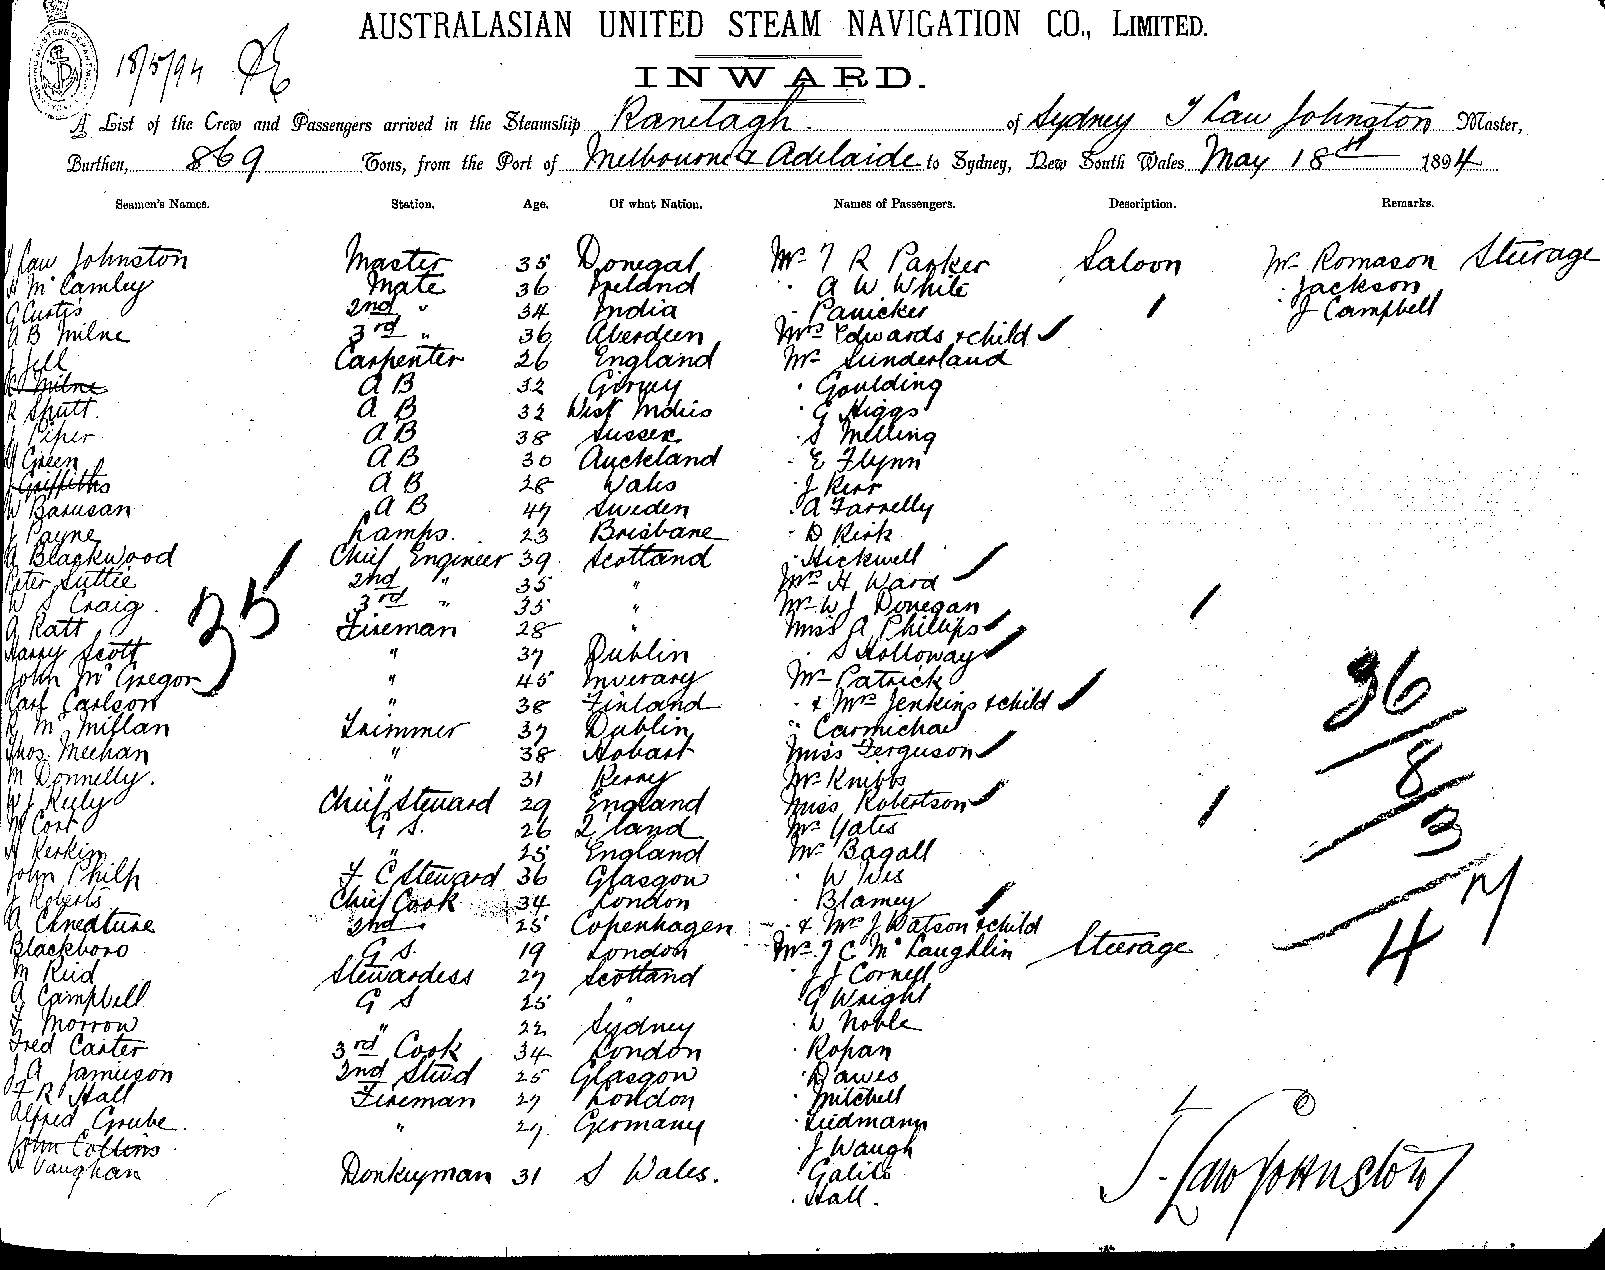 AUSTRALASIAN UNITED STEAM NAVIGATION CO., LIMITED.
18/5/94
INWARD.
A List of the Crew and Passengers arrived in the Steamship Ranelagh of Sydney T Law Johnston Master,
Burthen, 869 Tons, from the Port of Melbourne & Adelaide to Sydney, New South Wales May 18th 1894
Seamen's Names. Station. Age. Of what Nation. Names of Passengers. Description. Remarks.
T Law Johnston Master 35 Donegal Mr T R Parker Saloon Mr Romason Steerage
H McCamley Mate 36 Ireland " A W White " Jackson
G Curtis 2nd " 34 India " Panicker " J Campbell
A B Milne 3rd " 36 Aberdeen Mrs Edwards & child
J Jell Carpenter 26 England Mr Sunderland
Milne A B 32 " Goulding
R Shutt A B 32 West Indies " G Higgs
J Piper A B 38 Sussex " S Melling
Green A B 30 Auckland " E Flynn
J Griffiths A B 28 Wales " J Kerr
W Barusan A B 47 Sweden " A Farrelly
J Payne Lamps. 23 Brisbane " D Kirk
A Blackwood Chief Engineer 39 Scotland " Hickwell
Peter Suttie 2nd " 35 " Mrs H Ward
W S Craig 3rd " 35 " Mr W J Donegan
35
A Ratt Fireman 28 " Miss A Phillips
Harry Scott " 37 Dublin " S Holloway
John McGregor " 45 Inverary Mr Patrick
Carl Carlson " 38 Finland " & Mrs Jenkins & child
36
R McMillan Trimmer 37 Dublin " Carmichael
Thos Meehan " 38 Hobart Miss Ferguson
8
M Donnelly. " 31 Kerry Mr Knibbs
Kiely Chief Steward 29 England Miss Robertson
3
Cork G S. 26 Mr Yates
H Kerkin " 25 England Mr Bagall
John Philp F C Steward 36 Glasgow " W
J Roberts Chief Cook 34 London " Blamey
47
A Cineature 2nd 25 Copenhagen " & Mrs J Watson & child
Blackboro G S. 19 London Mr J C McLaughlin Steerage
M Reid Stewardess 27 Scotland " J J Cornell
A Campbell G S 25 " " G Wright
F Morrow " 22 Sydney " W Noble
Fred Carter 3rd Cook 34 London " Rohan
J A Jamieson 2nd Stwd 25 Glasgow " Dawes
F R Hall Fireman 27 London " Mitchell
Alfred Grube. " 27 Germany " Liedmann
John Collins " J Waugh
Vaughan Donkeyman 31 S Wales. " Galits
" Hall.
T. Law Johnston